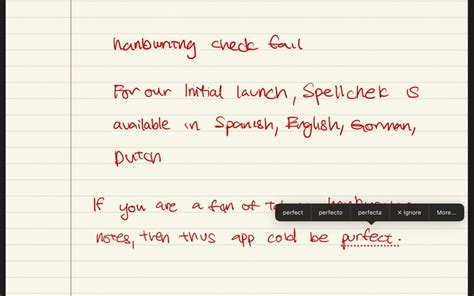 check fail
For our Initial launch, Spellchek is
available in Spanish, English, Gorman,
Dutch
If you are a fan of
perfect perfecto perfecta × Ignore More...
notes, then thus app cold be purfect.